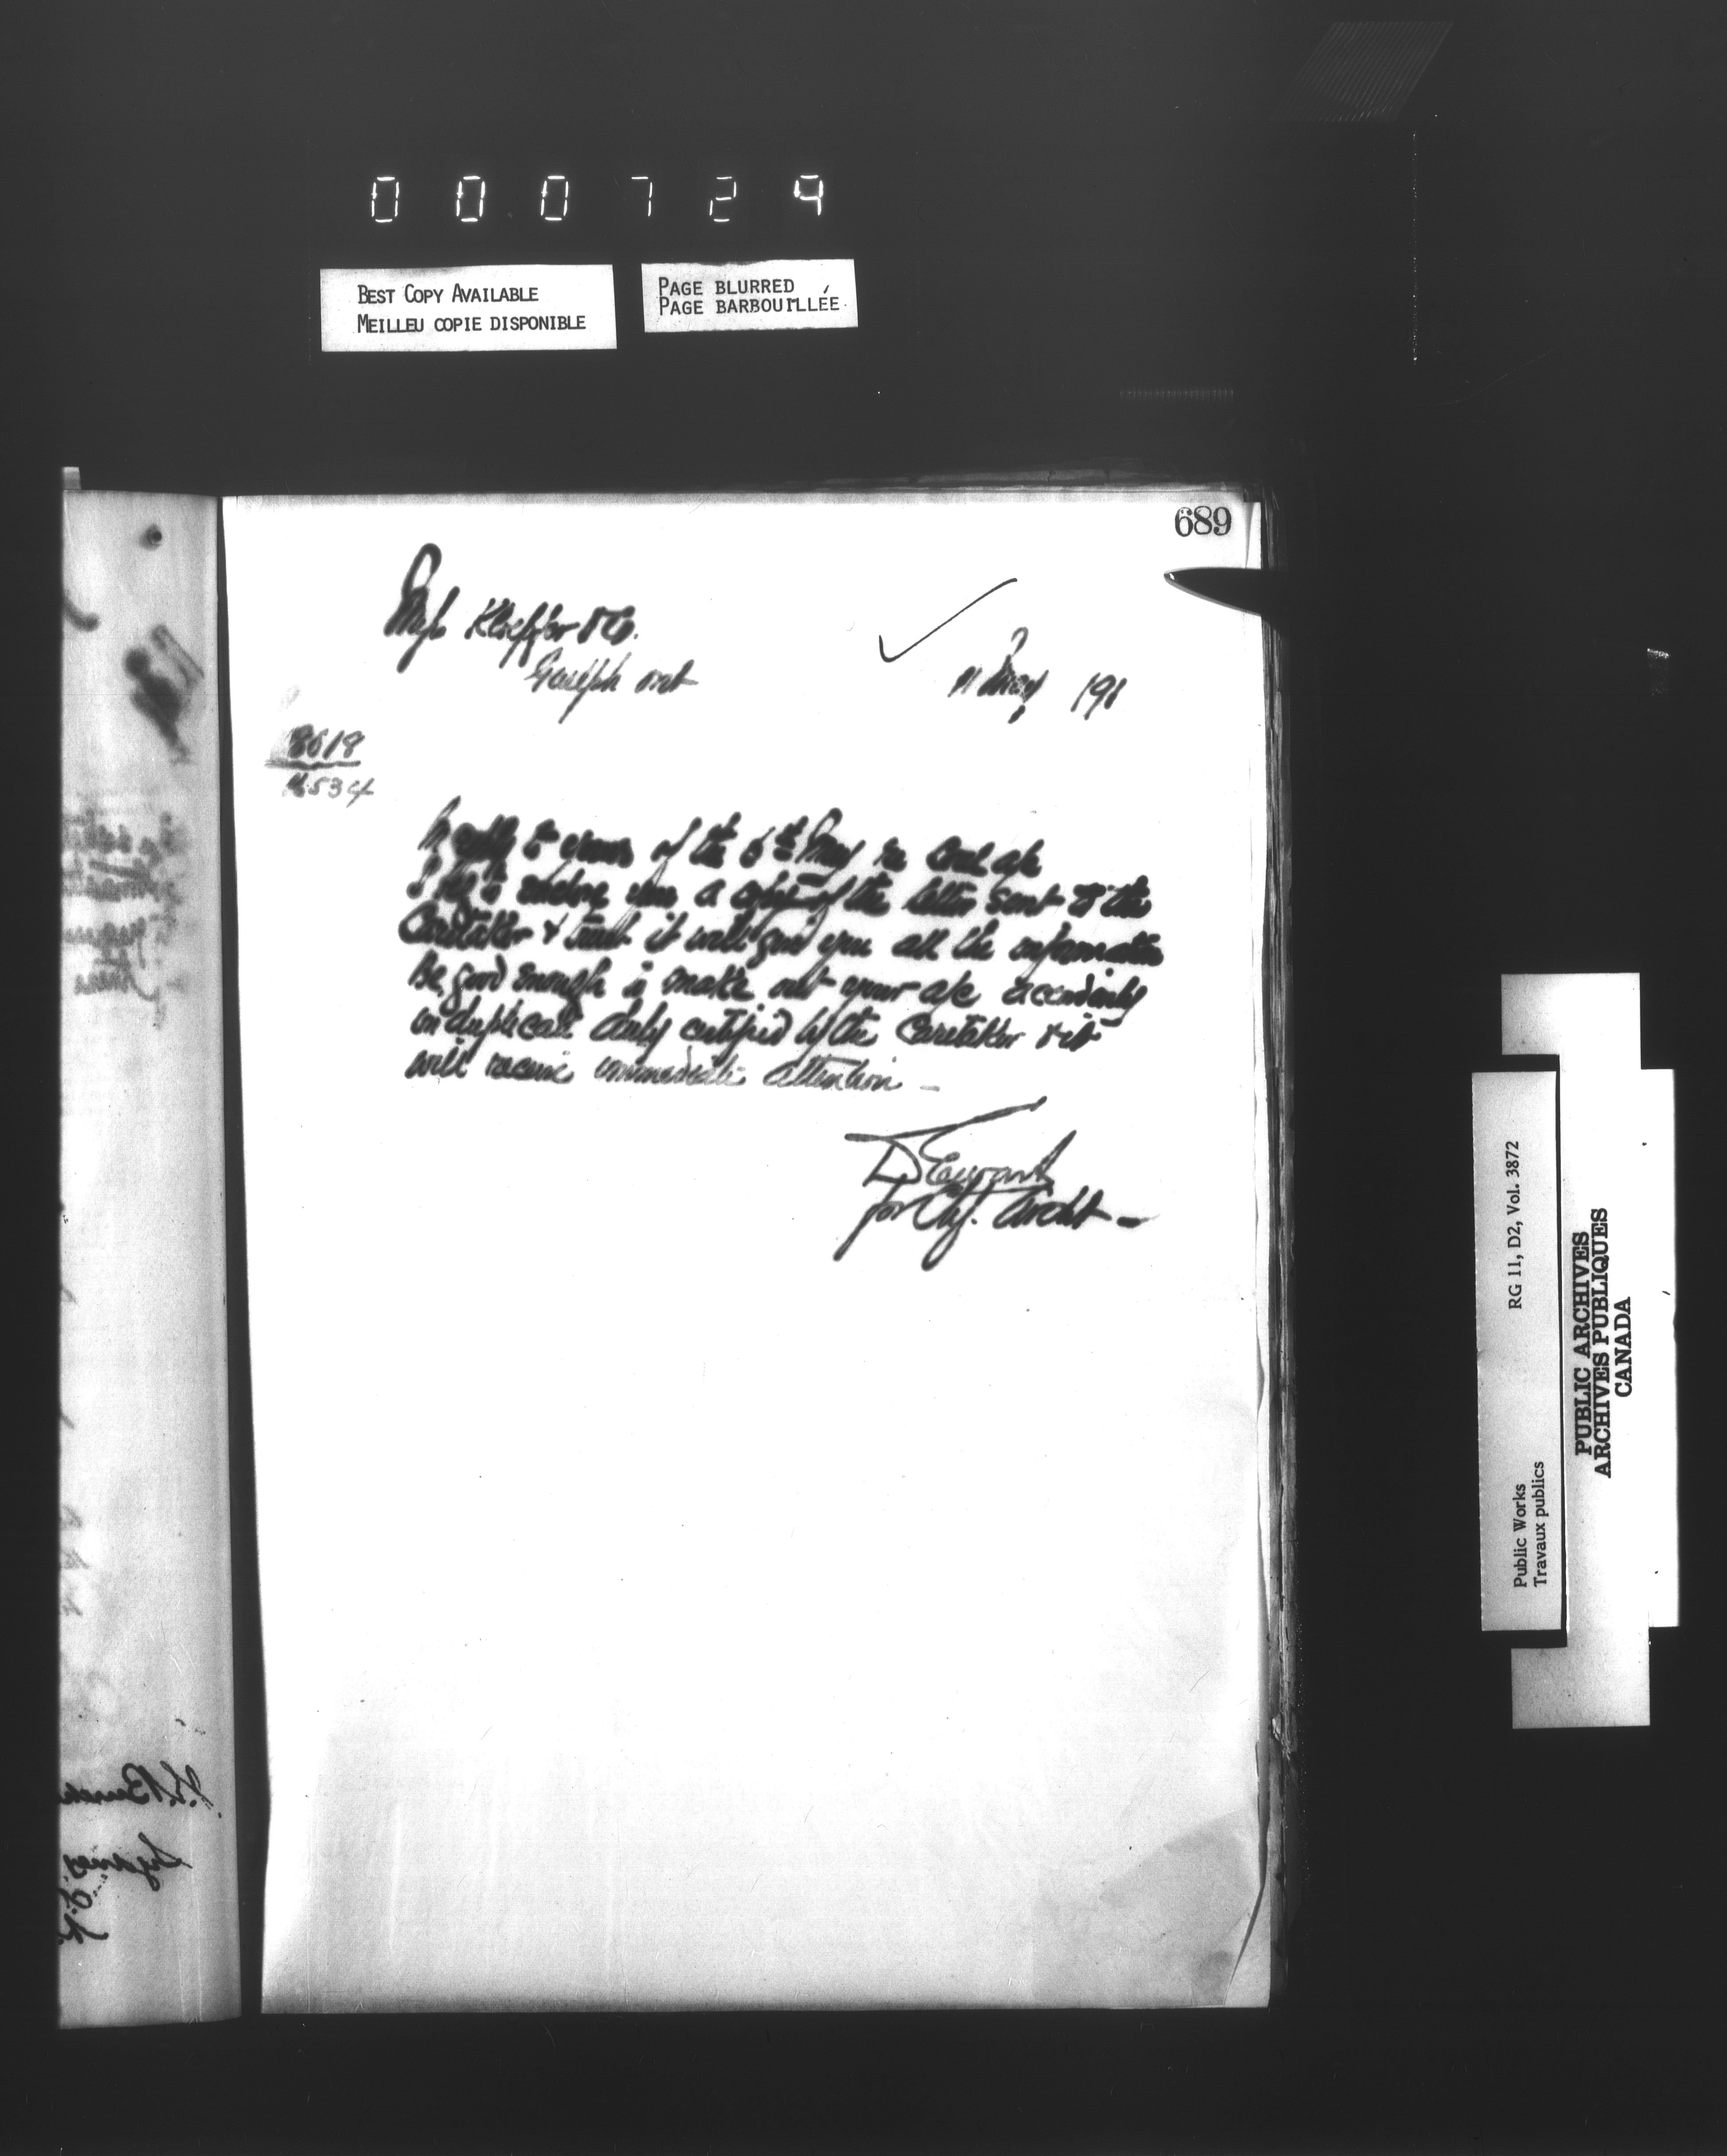 000729
BEST COPY AVAILABLE
MEILLEU COPIE DISPONIBLE
PAGE BLURRED
PAGE BARBOUILLÉE
689
Kloeffer & Co.
Guelph Ont
11 May 191
8618
534
In reply to yours of the 6th May re Coal a/c
I beg to enclose you a copy of the letter sent to the
Caretaker & trust it will give you all the information
Be good enough to make out your a/c accordingly
in duplicate duly certified by the Caretaker & it
will receive immediate attention —
D Ewart
for Chf. Archt —
RG 11, D2, Vol. 3872
Public Works
Travaux publics
PUBLIC ARCHIVES
ARCHIVES PUBLIQUES
CANADA